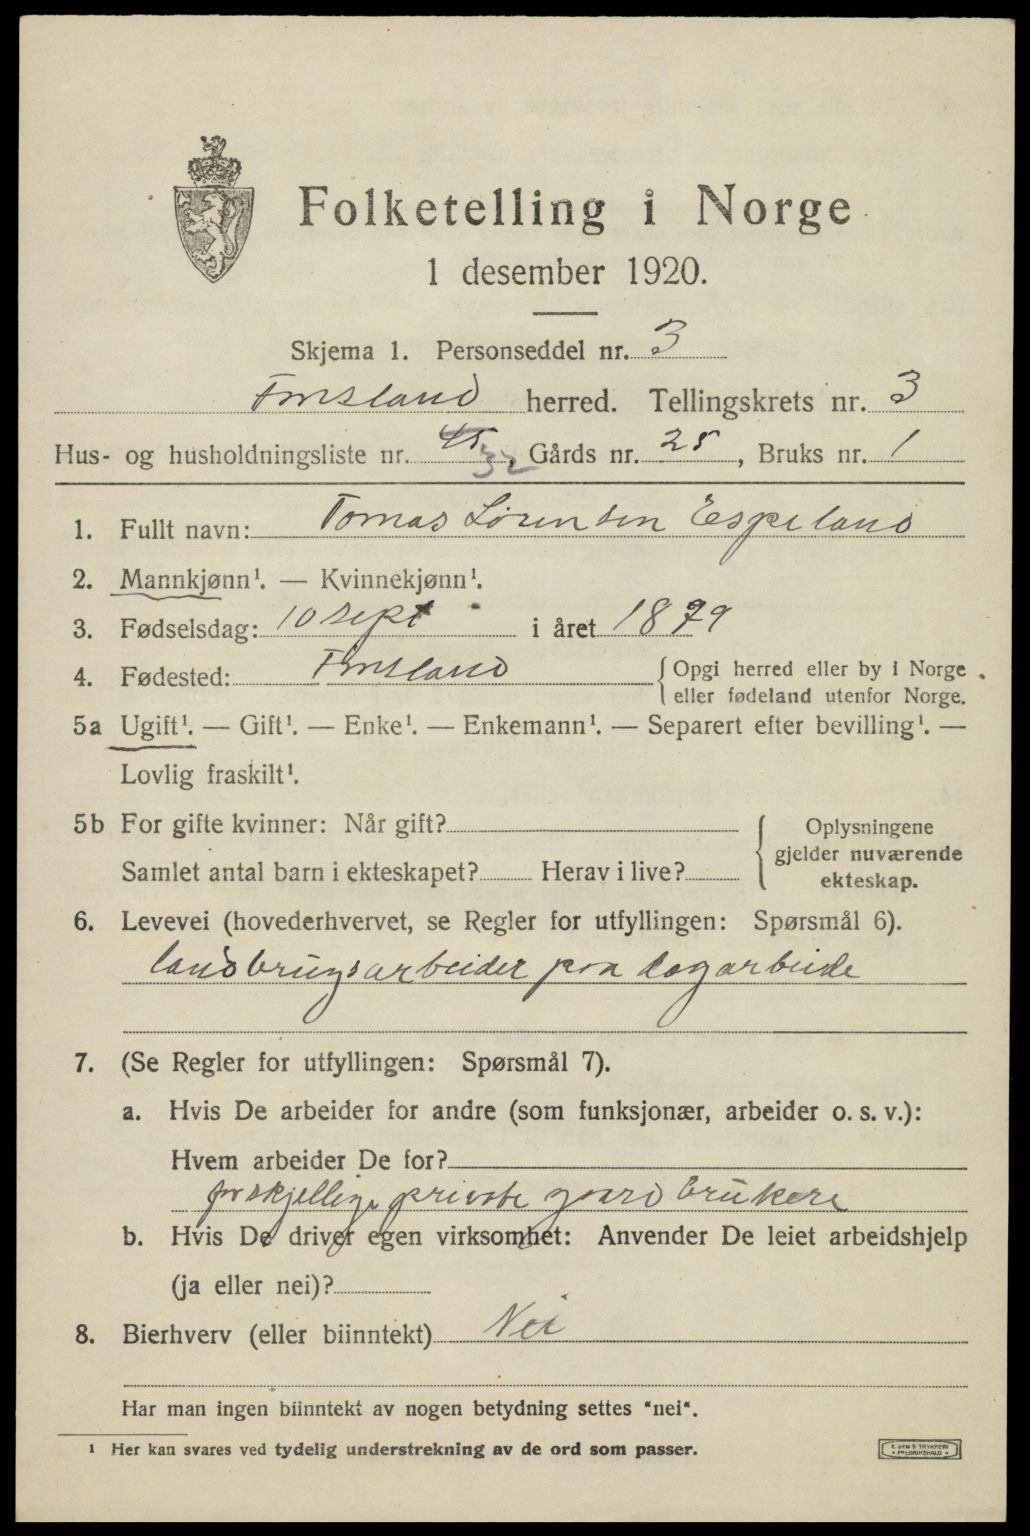 Folketelling i Norge
1 desember 1920.
Skjema 1. Personseddel nr. 3
Finsland herred. Tellingskrets nr. 3
Hus- og husholdningsliste nr. 45 32, Gårds nr. 25, Bruks nr. 1
1. Fullt navn: Tomas Lørensen Espeland
2. Mannkjønn¹. — Kvinnekjønn¹.
3. Fødselsdag: 10 sept i året 1879
4. Fødested: Finsland { Opgi herred eller by i Norge
{ eller fødeland utenfor Norge.
5a Ugift¹. — Gift¹. — Enke¹. — Enkemann¹. — Separert efter bevilling¹. —
Lovlig fraskilt¹.
5b For gifte kvinner: Når gift? { Oplysningene
gjelder nuværende
Samlet antal barn i ekteskapet? Herav i live? ekteskap.
6. Levevei (hovederhvervet, se Regler for utfyllingen: Spørsmål 6).
landbrugsarbeider paa dagarbeide
7. (Se Regler for utfyllingen: Spørsmål 7).
a. Hvis De arbeider for andre (som funksjonær, arbeider o. s. v.):
Hvem arbeider De for?
forskjellige private gaardbrukere
b. Hvis De driver egen virksomhet: Anvender De leiet arbeidshjelp
(ja eller nei)?
8. Bierhverv (eller biinntekt) Nei
Har man ingen biinntekt av nogen betydning settes "nei".
¹ Her kan svares ved tydelig understrekning av de ord som passer.
E. SEM'S TRYKKERI
FREDRIKSHALD